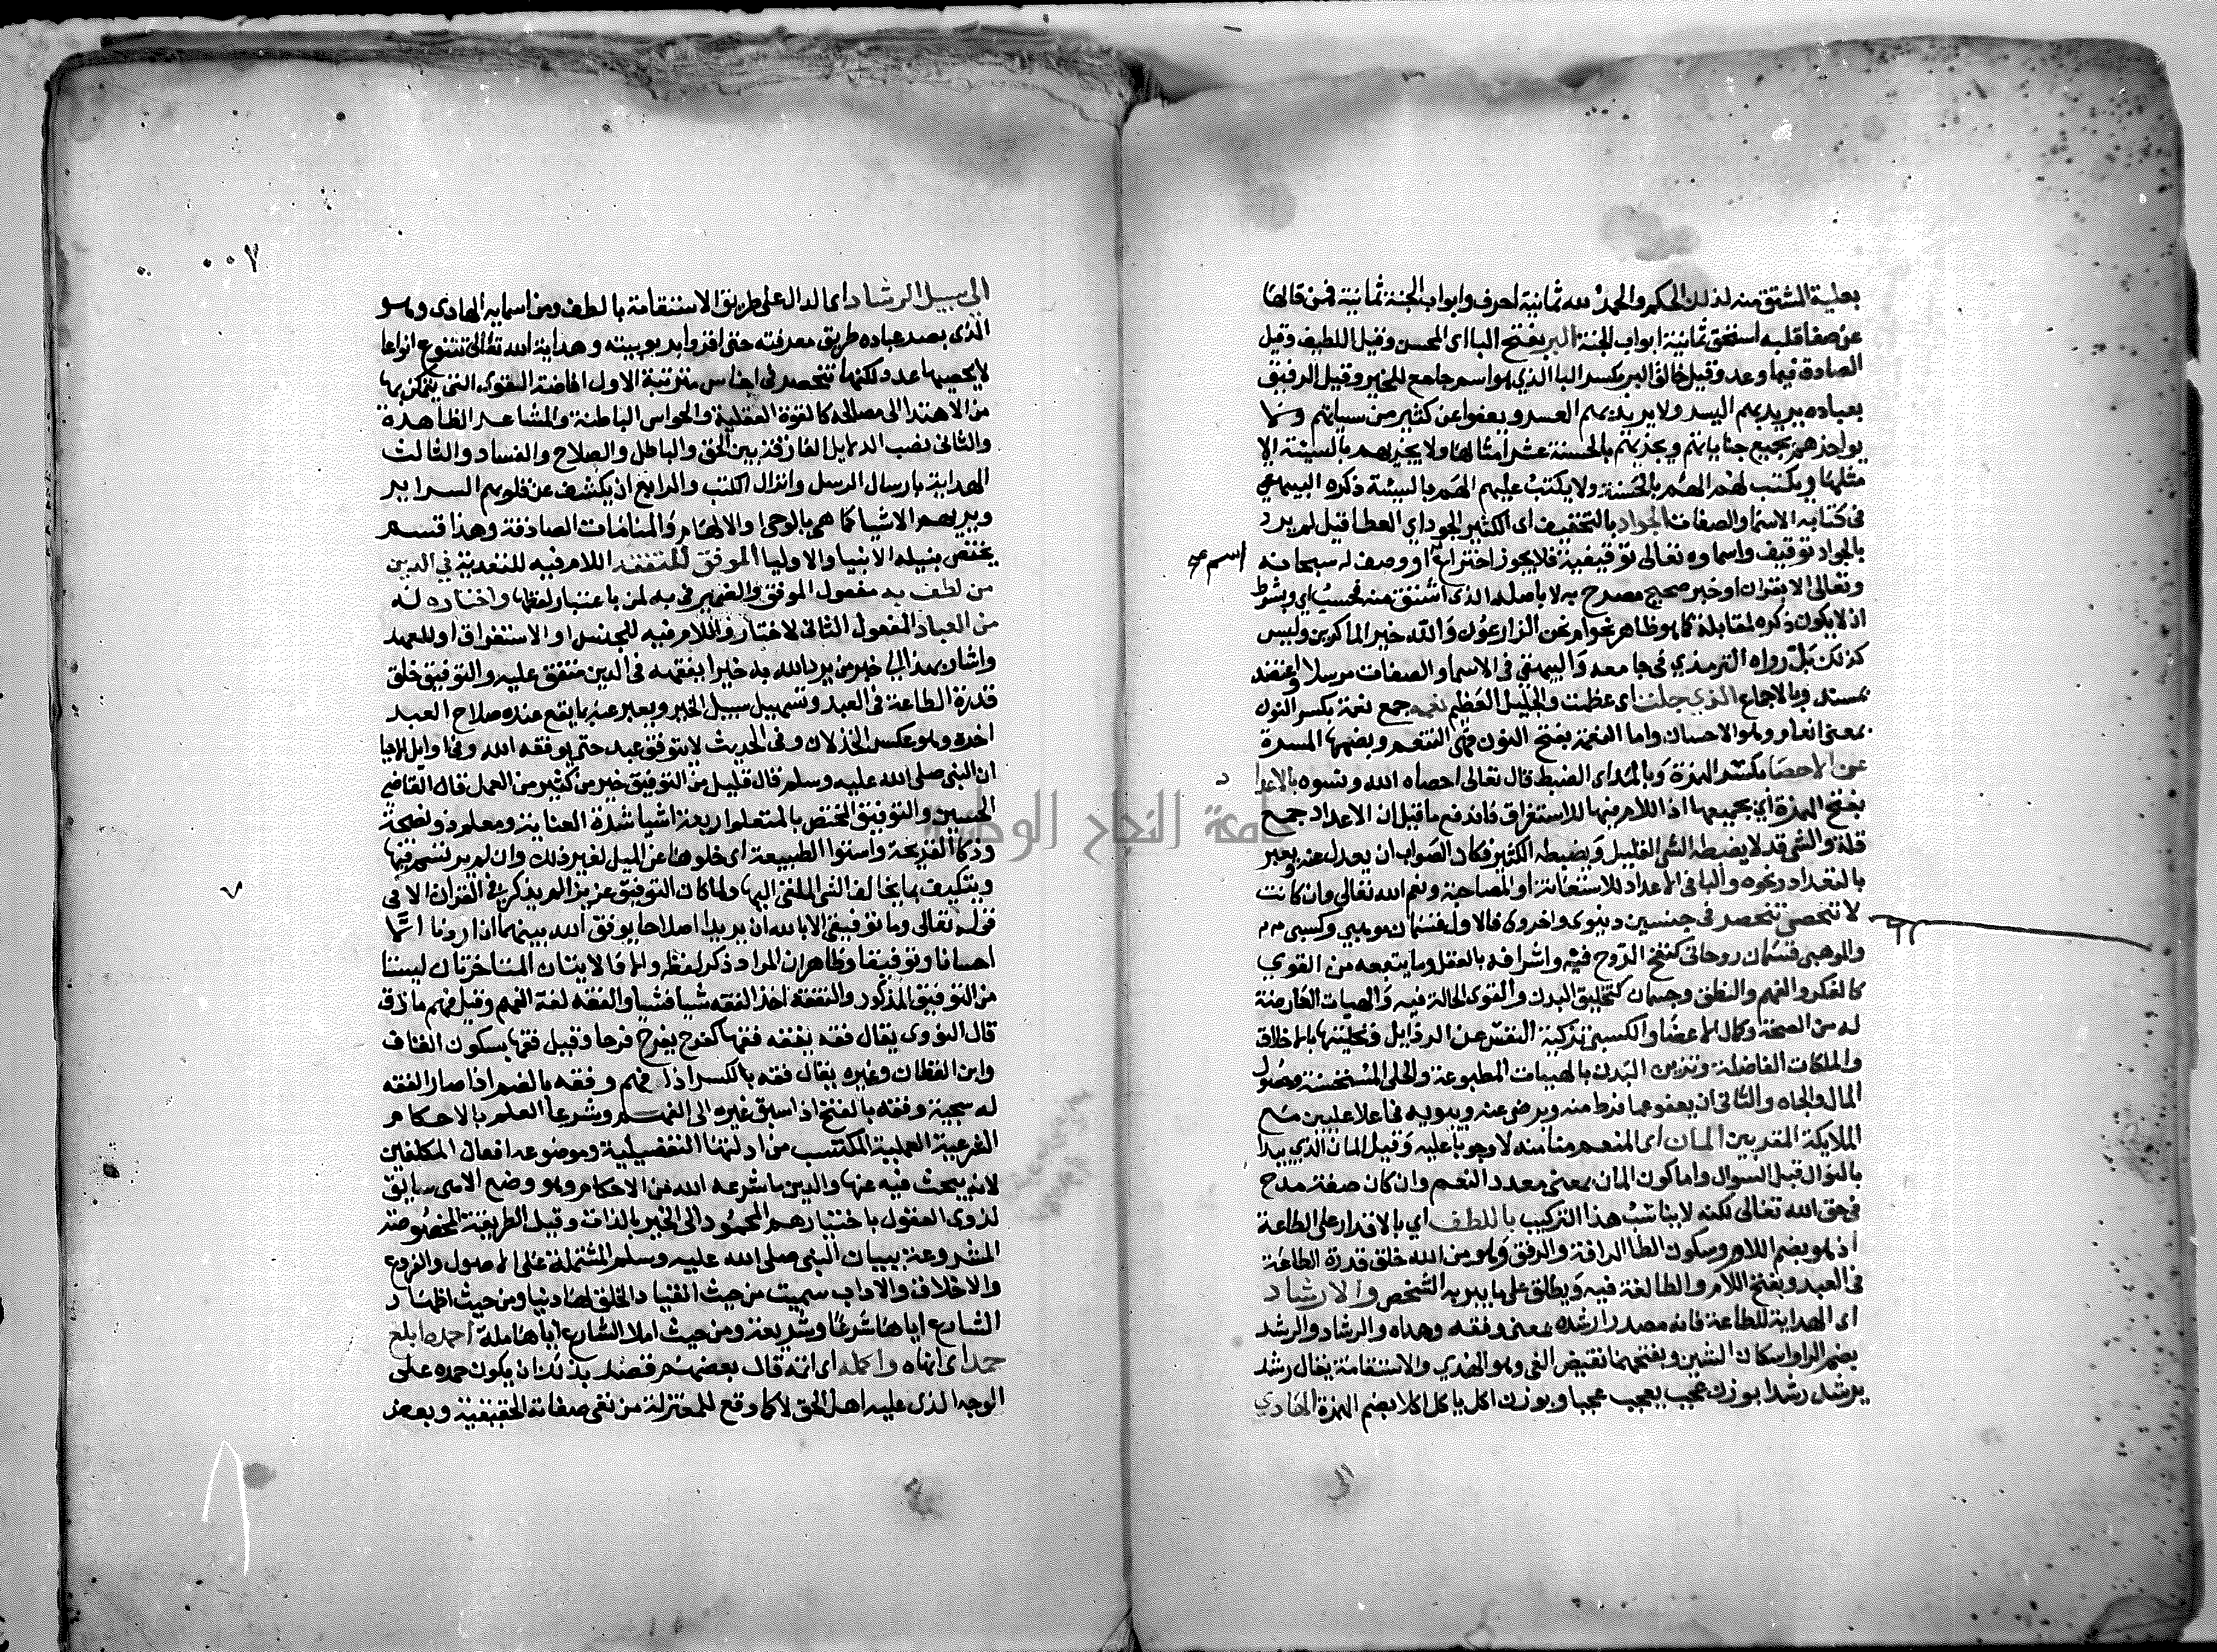 بعلية المشتق منه لذلك الحكم والحمد لله ثمانية احرف وابواب الجنة ثمانية فمن قالها
عن صفا قلبه استحق ثمانية ابواب الجنة البر بفتح البا اى المحسن وقيل اللطيف وقيل
الصادق فيما وعد وقيل خالق البر بكسر البا الذي هو اسم جامع للخير وقيل الرفيق
بعباده يريد بهم اليسر ولا يريد بهم العسر ويعفوا عن كثير من سيياتهم ولا
يواخذهم بجميع جناياتهم ويجزيهم بالحسنة عشر امثالها ولا يجزيهم بالسيئة الا
مثلها ويكتب لهم الهم بالحسنة ولا يكتب عليهم الهم بالسيئة ذكره البيهقي
في كتابه الاسما والصفات الجواد بالتخفيف اى الكثير الجود اي العطا قيل لم يرد
بالجواد توقيف واسماوه تعالى توقيفية فلا يجوز اختراع او وصف له سبحانه
اسم صح
وتعالى الا بقران او خبر صحيح مصرح به لا باصله الذى اشتق منه فحسب اي وبشرط
ان لا يكون ذكره لمقابلة كما هو ظاهر نحو ام نحن الزارعون والله خير الماكرين وليس
كذلك بل رواه الترمذي في جامعه والبيهقى فى الاسما والصفات مرسلا واعتضد
بمسند وبالاجماع الذي جلت اى عظمت والجليل العظيم نعمه جمع نعمة بكسر النون
بمعنى انعام وهو الاحسان واما النعمة بفتح النون فهى التنعم وبضمها المسرة
عن الاحصا بكسر الهمزة وبالمد اى الضبط قال تعالى احصاه الله ونسوه بالاعداد
بفتح الهمزة اي بجميعها اذ اللام فيها للاستغراق فاندفع ما قيل ان الاعداد جمع
قلة والشى قد لا يضبطه الشى القليل ويضبطه الكثير فكان الصواب ان يعدل عنه ويعبر
بالتعداد ونحوه والبا فى الاعداد للاستعانة او المصاحبة ونعم الله تعالى وان كانت
لا تحصى تنحصر فى جنسين دنيوى واخروى فالاول قسمان موهبي وكسبى
والموهبى قسمان روحانى كنفخ الروح فيه واشراقه بالعقل وما يتبعه من القوي
كالفكر والفهم والنطق وجسمان كتخليق البدن والقوى الحالة فيه والهيات العارضة
له من الصحة وكمال الاعضا والكسبى تزكية النفس عن الرذايل وتحليتها بالاخلاق
والملكات الفاضلة وتزيين البدن بالهييات المطبوعة والحلى المستحسنة وحصول
المال والجاه والثانى ان يعفو عما فرط منه ويرضى عنه ويبويه فى اعلا عليين مع
الملايكة المقربين المنان اى المنعم منا منه لا وجوبا عليه وقيل المنان الذي يبدا
بالنوال قبل السوال واما كون المنان بمعنى معدد النعم وان كان صفة مدح
في حق الله تعالى لكنه لا يناسب هذا التركيب باللطف اي بالاقدار على الطاعة
اذ هو بضم اللام وسكون الطا الرافة والرفق وهو من الله خلق قدرة الطاعة
فى العبد وبفتح اللام والطا لغة فيه ويطلق على ما يبر به الشخص والارشاد
اى الهداية للطاعة فانه مصدر ارشده بمعنى وفقه وهداه والرشاد والرشد
بضم الرا واسكان الشين وبفتحهما نقيض الغى وهو الهدي والاستقامة يقال رشد
يرشد رشدا بوزن عجب يعجب عجبا وبوزن اكل ياكل اكلا بضم الهمزة الهادي
الى
٠٠٧
الى سبيل الرشاد اى الدال على طريق الاستقامة بالطف ومن اسمايه الهادى وهو
الذى بصر عباده طريق معرفته حتى اقروا بربوبيته وهداية الله تعالى تتنوع انواعا
لا يحصيها عدد لكنها تنحصر فى اجناس مترتبة الاول افاضة القوى التى يتمكن بها
من الاهتدا الى مصالحه كالقوة العقلية والحواس الباطنة والمشاعر الظاهرة
والثانى نصب الدلايل الفارقة بين الحق والباطل والصلاح والفساد والثالث
الهداية بارسال الرسل وانزال الكتب والرابع ان يكشف عن قلوبهم السراير
ويريهم الاشيا كما هى بالوحى او الالهام والمنامات الصادقة وهذا قسم
يختص بنيله الانبيا والاوليا الموفق للتفقه اللام فيه للتعدية في الدين
من لطف به مفعول الموفق والضمير فى به لمن باعتبار لفظها واختاره له
من العباد المفعول الثانى لاختار واللام فيه للجنس او الاستغراق او للعهد
واشار بهذا الى خبر من يرد الله به خيرا يفقهه فى الدين متفق عليه والتوفيق خلق
قدرة الطاعة فى العبد وتسهيل سبيل الخير ويعبر عنه بما يقع عنده صلاح العبد
اخرة وهو عكس الخذلان وفى الحديث لا يتوفق عبد حتى يوفقه الله وفى اوايل الاحيا
ان النبى صلى الله عليه وسلم قال قليل من التوفيق خير من كثير من العمل قال القاضى
الحسين والتوفيق المختص بالمتعلم اربعة اشيا شدة العناية ومعلم ذو نصيحة
وذكا القريحة واستوا الطبيعة اى خلوها عن الميل لغير ذلك وان لم يرتسم فيها
ويتكيف بما يخالف الشى الملقى اليها ولما كان التوفيق عزيزا لم يذكر في القران الا فى
قوله تعالى وما توفيقى الا بالله ان يريدا اصلاحا يوفق الله بينهما ان اردنا الا
احسانا وتوفيقا وظاهر ان المراد ذكر لفظه والا فالايتان المتاخرتان ليستا
من التوفيق المذكور والتفقه اخذ الفقه شيا فشيا والفقه لغة الفهم وقيل فهم ما دق
قال النووى يقال فقه يفقه فقها كفرح يفرح فرحا وقيل فقها بسكون القاف
وابن القطان وغيره يقال فقه بالكسر اذا فهم وفقه بالضم اذا صار الفقه
له سجية وفقه بالفتح اذا سبق غيره الى الفهم وشرعا العلم بالاحكام
الشرعية العملية المكتسب من ادلتها التفصيلية وموضوعه افعال المكلفين
لانه يبحث فيه عنها والدين ما شرعه الله من الاحكام وهو وضع الاهى سايق
لذوى العقول باختيارهم المحمود الى الخير بالذات وقيل الطريقة المخصوصة
المشروعة ببيان النبى صلى الله عليه وسلم المشتملة على الاصول والفروع
والاخلاق والاداب سميت من حيث انقياد الخلق لها دينا ومن حيث اظهار
الشارع اياها شرعا وشريعة ومن حيث املا الشارع اياها ملة احمده ابلغ
حمد اى انهاه واكمله اى اتمه قال بعضهم قصد بذلك ان يكون حمده على
الوجه الذى عليه اهل الحق لا كما وقع للمعتزلة من نفى صفاته الحقيقية وبعض
جامعة النجاح الوطنية